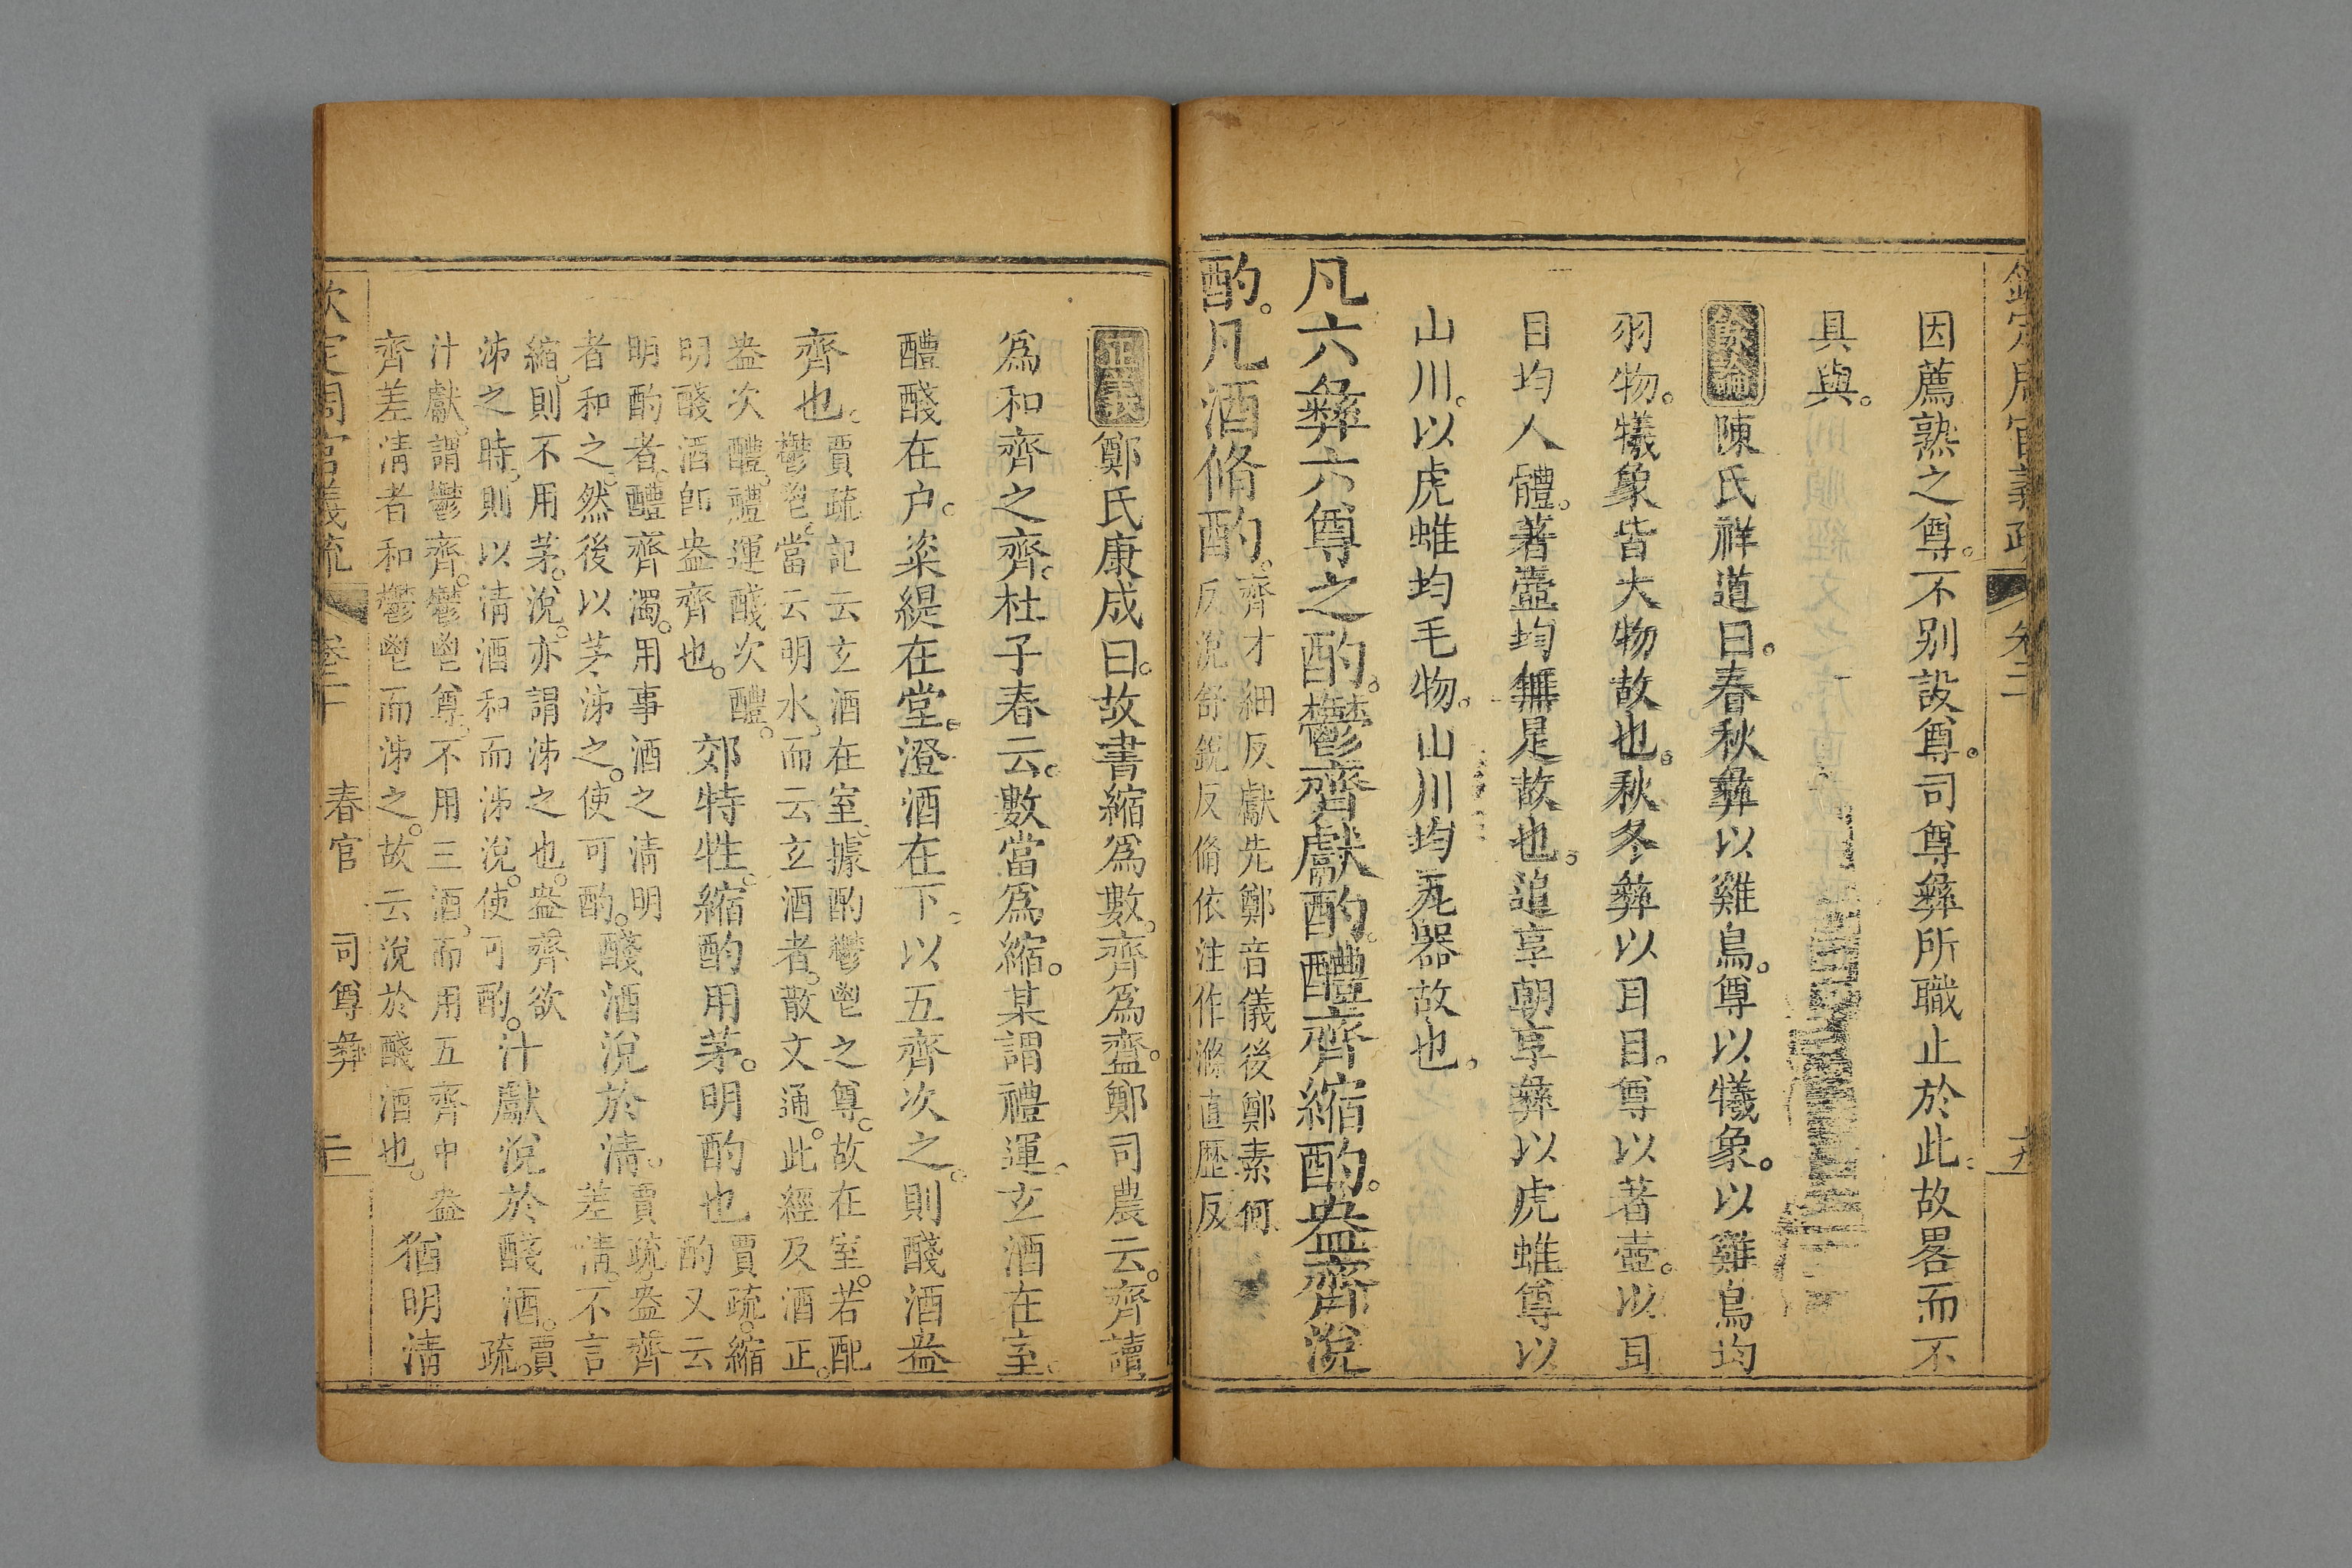 因薦熟之尊。不别設尊。司尊彝所職止於此。故畧而不
具與。
餘論陳氏祥道曰。春秋彝以雞鳥。尊以犧象。以雞鳥均
羽物。犧象皆大物故也。秋冬彝以耳目。尊以著壺。以耳
目均人體。著壺均無是故也。追享朝享彝以虎蜼尊以
山川。以虎蜼均毛物。山川均瓦器故也。
凡六彝六尊之酌。鬱齊獻酌。醴齊縮酌。盎齊涚
酌。凡酒脩酌。齊才細反獻先鄭音儀後鄭素何
反涚舒銳反脩依注作滌直歴反
正義鄭氏康成曰。故書縮爲數。齊爲齍。鄭司農云。齊讀
爲和齊之齊。杜子春云。數當爲縮。某謂禮運。玄酒在室。
醴醆在户。粢緹在堂。澄酒在下。以五齊次之。則醆酒盎
齊也。賈疏記云玄酒在室。據酌鬱鬯之尊。故在室。若配
鬱鬯。當云明水。而云玄酒者。散文通。此經及酒正。
盎次醴。禮運醆次醴。
明醆酒卽盎齊也。郊特牲。縮酌用茅。明酌也賈疏。縮
酌又云
明酌者。醴齊濁。用事酒之清明
者和之。然後以茅泲之。使可酌。醆酒涚於清。賈疏。盎齊
差清。不言
縮。則不用茅。涚。亦謂泲之也。盎齊欲
泲之時。則以清酒和而泲涚。使可酌。汁獻涚於醆酒。賈
疏。
汁獻。謂鬱齊。鬱鬯尊。不用三酒。而用五齊中盎
齊差清者和鬱鬯而泲之。故云涚於醆酒也。猶明清
春官 司尊彝